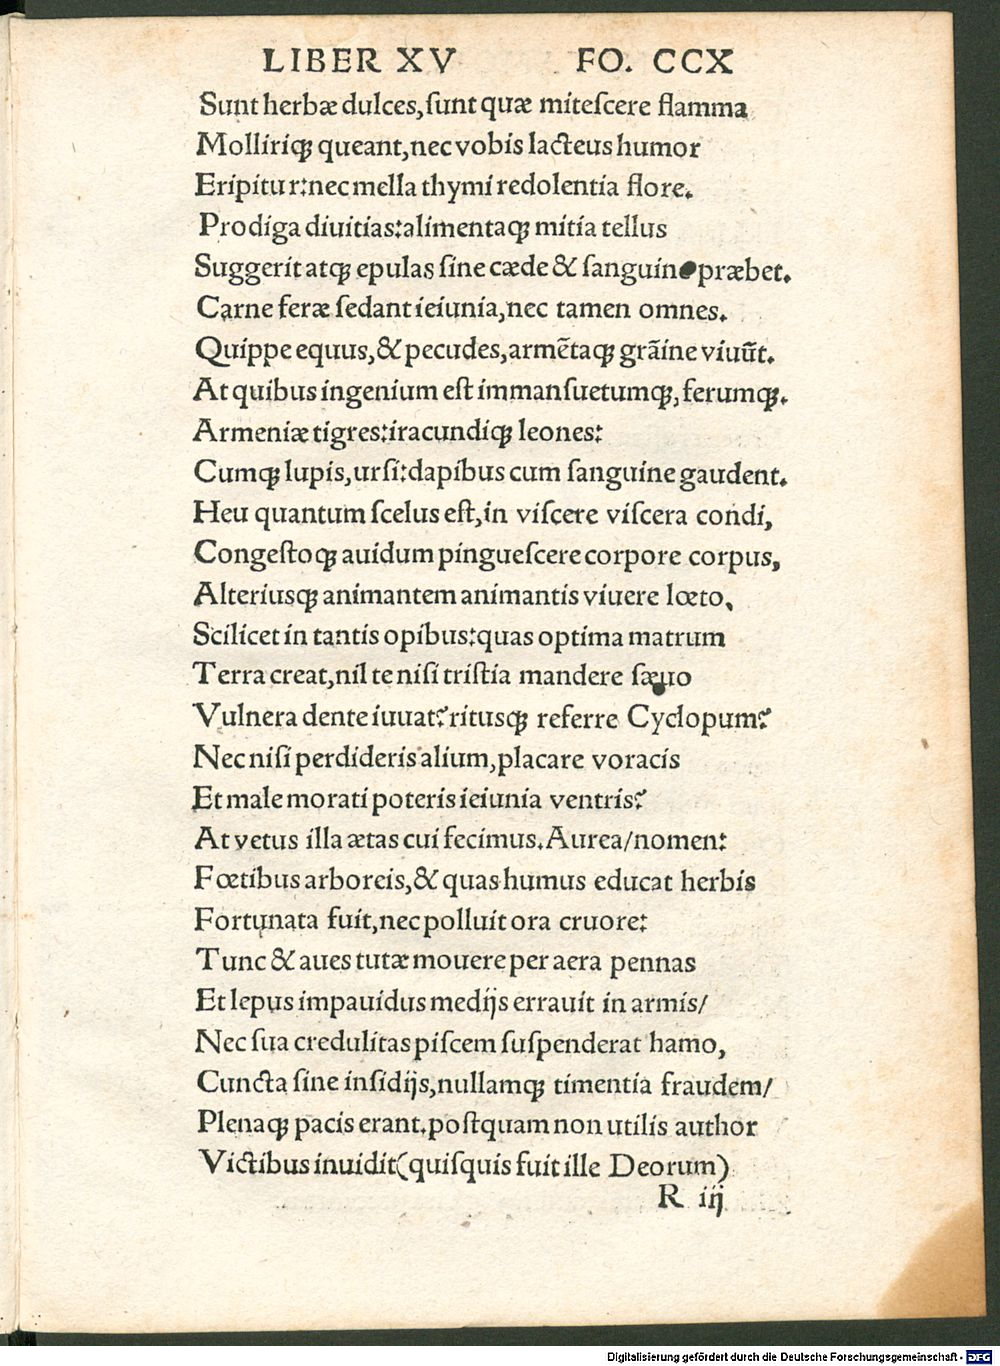 LIBER XV FO. CCX
Sunt herbæ dulces,ſunt quæ miteſcere flamma
Molliriqꝫ queant,nec vobis lacteus humor
Eripitur:nec mella thymi redolentia flore.
Prodiga diuitias:alimentaqꝫ mitia tellus
Suggerit atqꝫ epulas ſine cæde & ſanguine præbet.
Carne feræ ſedant ieiunia,nec tamen omnes.
Quippe equus,& pecudes,armẽtaqꝫ grãine viuũt.
At quibus ingenium eſt immanſuetumqꝫ,ferumqꝫ.
Armeniæ tigres:iracundiqꝫ leones:
Cumqꝫ lupis,urſi:dapibus cum ſanguine gaudent.
Heu quantum ſcelus eſt,in viſcere viſcera condi,
Congeſtoqꝫ auidum pingueſcere corpore corpus,
Alteriusqꝫ animantem animantis viuere lœto,
Scilicet in tantis opibus:quas optima matrum
Terra creat,nil te niſi triſtia mandere ſæuo
Vulnera dente iuuat?ritusqꝫ referre Cyclopum?
Nec niſi perdideris alium,placare voracis
Et male morati poteris ieiunia ventris?
At vetus illa ætas cui fecimus.Aurea/nomen:
Fœtibus arboreis,& quas humus educat herbis
Fortunata fuit,nec polluit ora cruore:
Tunc & aues tutæ mouere per aera pennas
Et lepus impauidus medijs errauit in armis/
Nec ſua credulitas piſcem ſuſpenderat hamo,
Cuncta ſine inſidijs,nullamqꝫ timentia fraudem/
Plenaqꝫ pacis erant.poſtquam non utilis author
Victibus inuidit(quiſquis fuit ille Deorum)
R iij
Digitalisierung gefördert durch die Deutsche Forschungsgemeinschaft - DFG